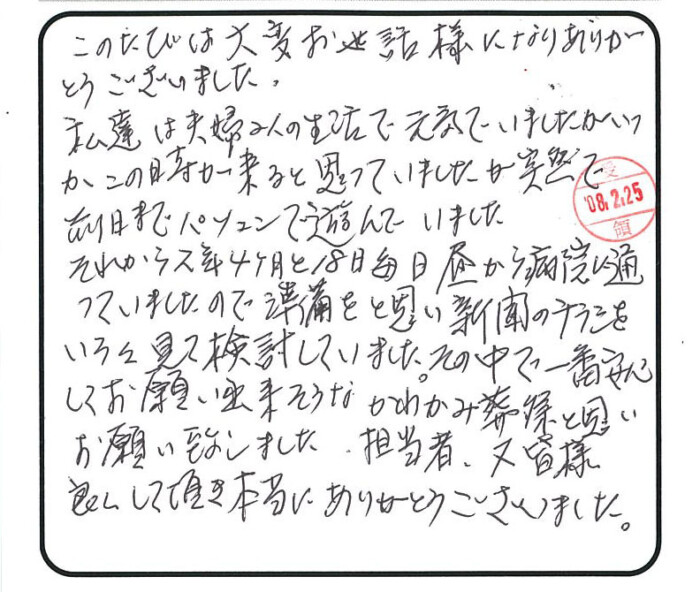 このたびは大変お世話様になりありが
とうございました。
私達は夫婦2人の生活で元気でいましたがいつ
か、この時が来ると思っていましたが突然で
前日までパソコンで遊んで いました
それから2年4ヶ月と18日毎日昼から病院に通
っていましたので準備をと思い新聞のチラシを
いろいろ見て検討していました。その中で一番安心
してお願い出来そうな かわかみ葬祭と思い
お願い致しました. 担当者、又皆様
良くして頂き本当にありがとうございました。
受
'08.2.25
領